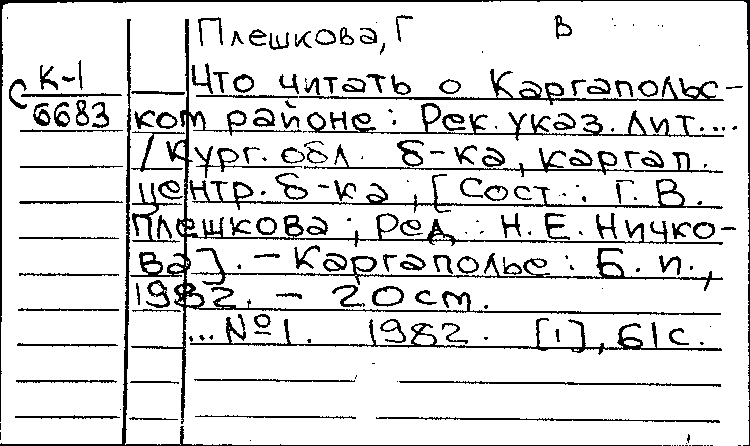 Плешкова, Г В
К-1 Что читать о Каргапольс-
С 6683 ком районе : Рек. указ. лит....
/ Кург. обл. б-ка, каргап.
центр. б-ка ; [Сост.: Г. В.
Плешкова ; Ред : Н. Е. Ничко-
ва]. - Каргаполье : Б. и.,
1982. - 20 см.
...№1. 1982. [1], 61 с.